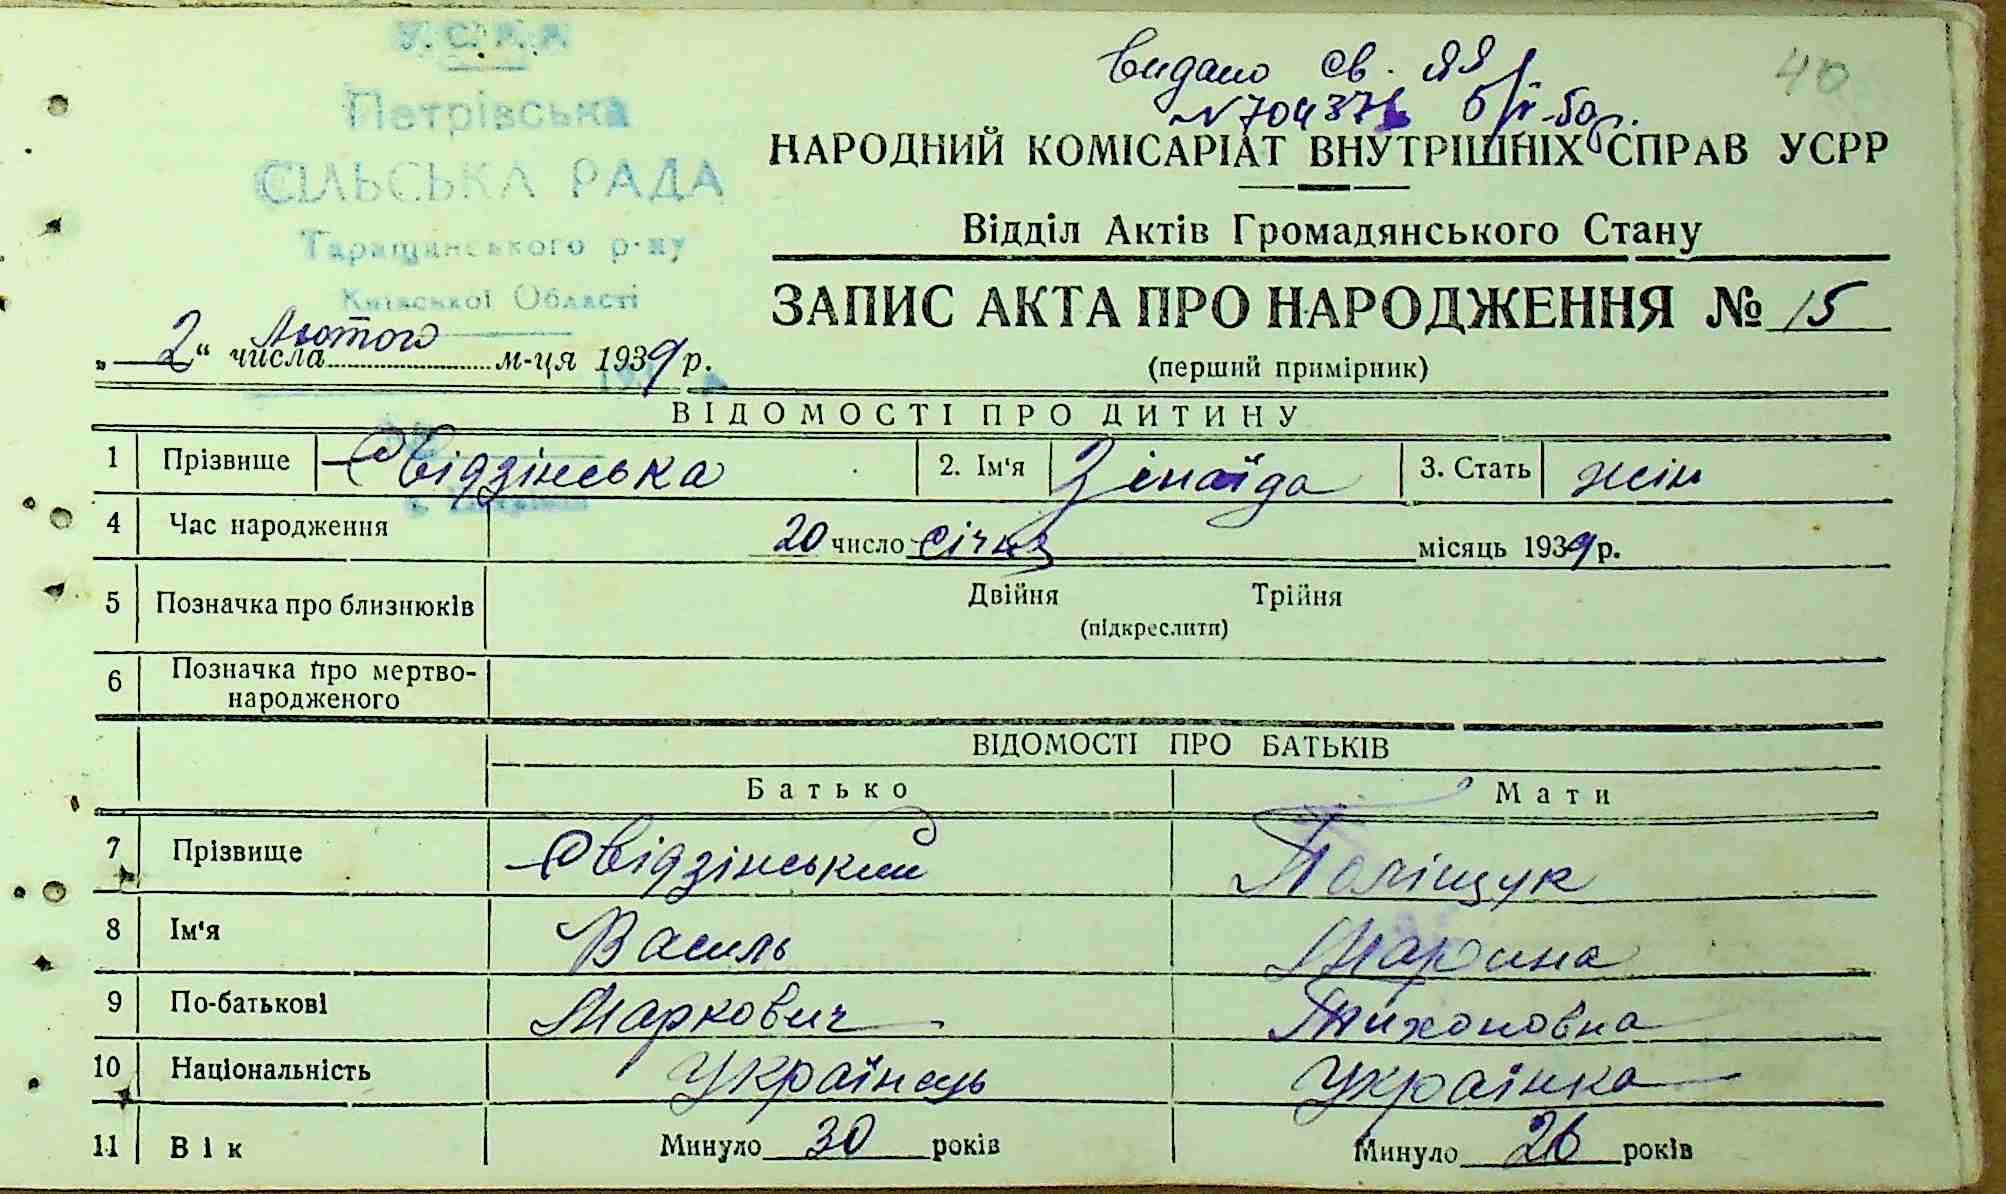 У.С.Р.Р.
Петрівська
СІЛЬСЬКА РАДА
Таращанського р-ну
Київської Области
Видано св. ЯЯ
40
НАРОДНИЙ КОМІСАРІАТ ВНУТРІШНІХ СПРАВ УСРР
Відділ Актів Громадянського Стану
ЗАПИС АКТА ПРО НАРОДЖЕННЯ № 15
(перший примірник)
„ 2 “ числа Лютого м-ця 1939 р.
ВІДОМОСТІ ПРО ДИТИНУ
1 Прізвище Свідзінська 2. Ім'я Зінаїда 3. Стать жін
4 Час народження 20 число січня місяць 1939 р.
5 Позначка про близнюків Двійня Трійня
(підкреслити)
6 Позначка про мертво-
народженого
ВІДОМОСТІ ПРО БАТЬКІВ
Батько Мати
7 Прізвище Свідзінський Поліщук
8 Ім'я Василь Марина
9 По-батькові Маркович Тихоновна
10 Національність Українець Українка
11 Вік Минуло 30 років Минуло 26 років